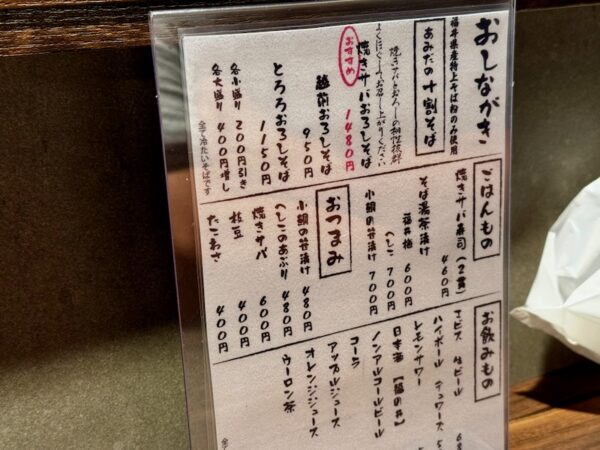 おしながき
福井県産特上そば粉のみ使用
あみだの十割そば
焼きサバとおろしの相性抜群
よくほぐしてお召し上がりください
おすすめ
焼きサバおろしそば
1480円
越前おろしそば
950円
とろろおろしそば
1150円
各小盛り 200円引き
各大盛り 400円増し
全て冷たいそばです
ごはんもの
焼きサバ寿司(2貫) 460円
そば湯茶漬け
福井梅 600円
へしこ 700円
小鯛の笹漬け 700円
おつまみ
小鯛の笹漬け 480円
へしこのあぶり 480円
焼きサバ 600円
枝豆 400円
たこわさ 400円
お飲みもの
ヱビス 生ビール
ハイボール デュワーズ
レモンサワー
日本酒
ノンアルコールビール
コーラ
アップルジュース
オレンジジュース
ウーロン茶